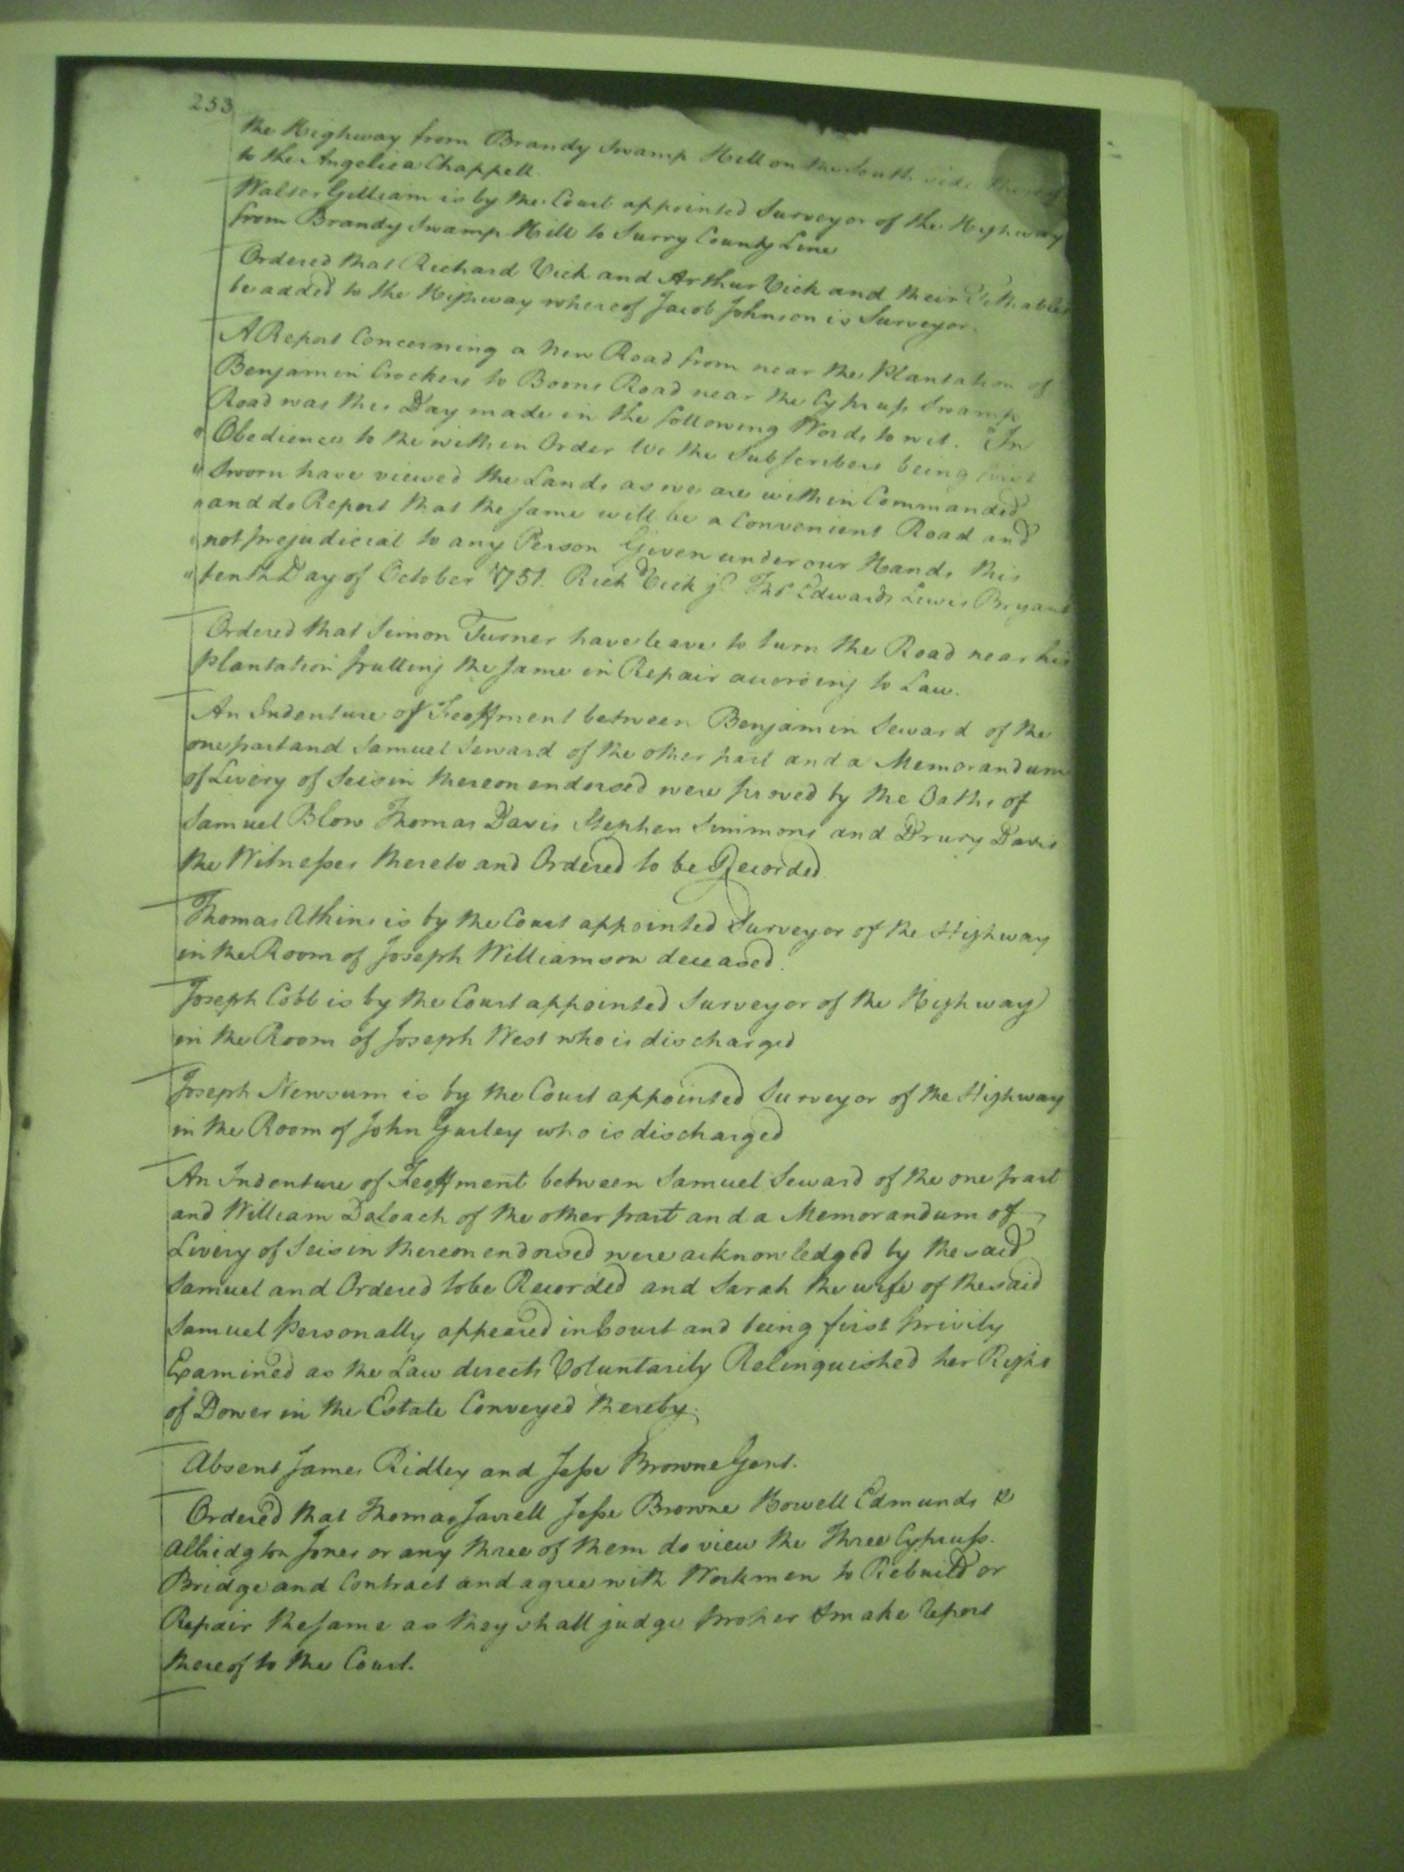 253
the Highway from Brandy Swamp Hill on the South side thereof
to the Angelica Chappell.
Walter Gilliam is by the Court appointed Surveyor of the Highway
from Brandy Swamp Hill to Surry County Line
Ordered that Richard Vick and Arthur Vick and their Tithables
be added to the Highway whereof Jacob Johnson is Surveyor.
A Report Concerning a new Road from near the Plantation of
Benjamin Crockers to Boons Road near the Cypruss Swamp
Road was this Day made in the following Words to wit. "In
" Obedience to the within Order We the Subscribers being first
" Sworn have viewed the Lands as we are within Commanded
" and do Report that the same will be a Convenient Road and
" not prejudicial to any Person Given under our Hands this
" tenth Day of October 1751. Rich.d Vick jr. Thos. Edwards Lewis Bryant
Ordered that Simon Turner have leave to turn the Road near his
Plantation putting the same in Repair according to Law.
An Indenture of Feoffment between Benjamin Seward of the
one part and Samuel Seward of the other part and a Memorandum
of Livery of Seisin thereon endorsed were proved by the Oaths of
Samuel Blow Thomas Davis Stephen Simmons and Drury Davis
the Witnesses thereto and Ordered to be Recorded
Thomas Atkins is by the Court appointed Surveyor of the Highway
in the Room of Joseph Williamson deceased.
Joseph Cobb is by the Court appointed Surveyor of the Highway
in the Room of Joseph West who is discharged
Joseph Newsum is by the Court appointed Surveyor of the Highway
in the Room of John Gurley who is discharged
An Indenture of Feoffment between Samuel Seward of the one part
and William DeLoach of the other part and a Memorandum of
Livery of Seisin thereon endorsed were acknowledged by the said
Samuel and Ordered to be Recorded and Sarah the wife of the said
Samuel personally appeared in Court and being first privily
Examined as the Law directs Voluntarily Relinquished her Right
of Dower in the Estate Conveyed thereby.
Absent James Ridley and Jesse Browne Gent.
Ordered that Thomas Jarrell Jesse Browne Howell Edmunds &
Albridgton Jones or any three of them do view the Three Cypruss
Bridge and Contract and agree with Workmen to Rebuild or
Repair the same as they shall judge proper & make report
thereof to the Court.